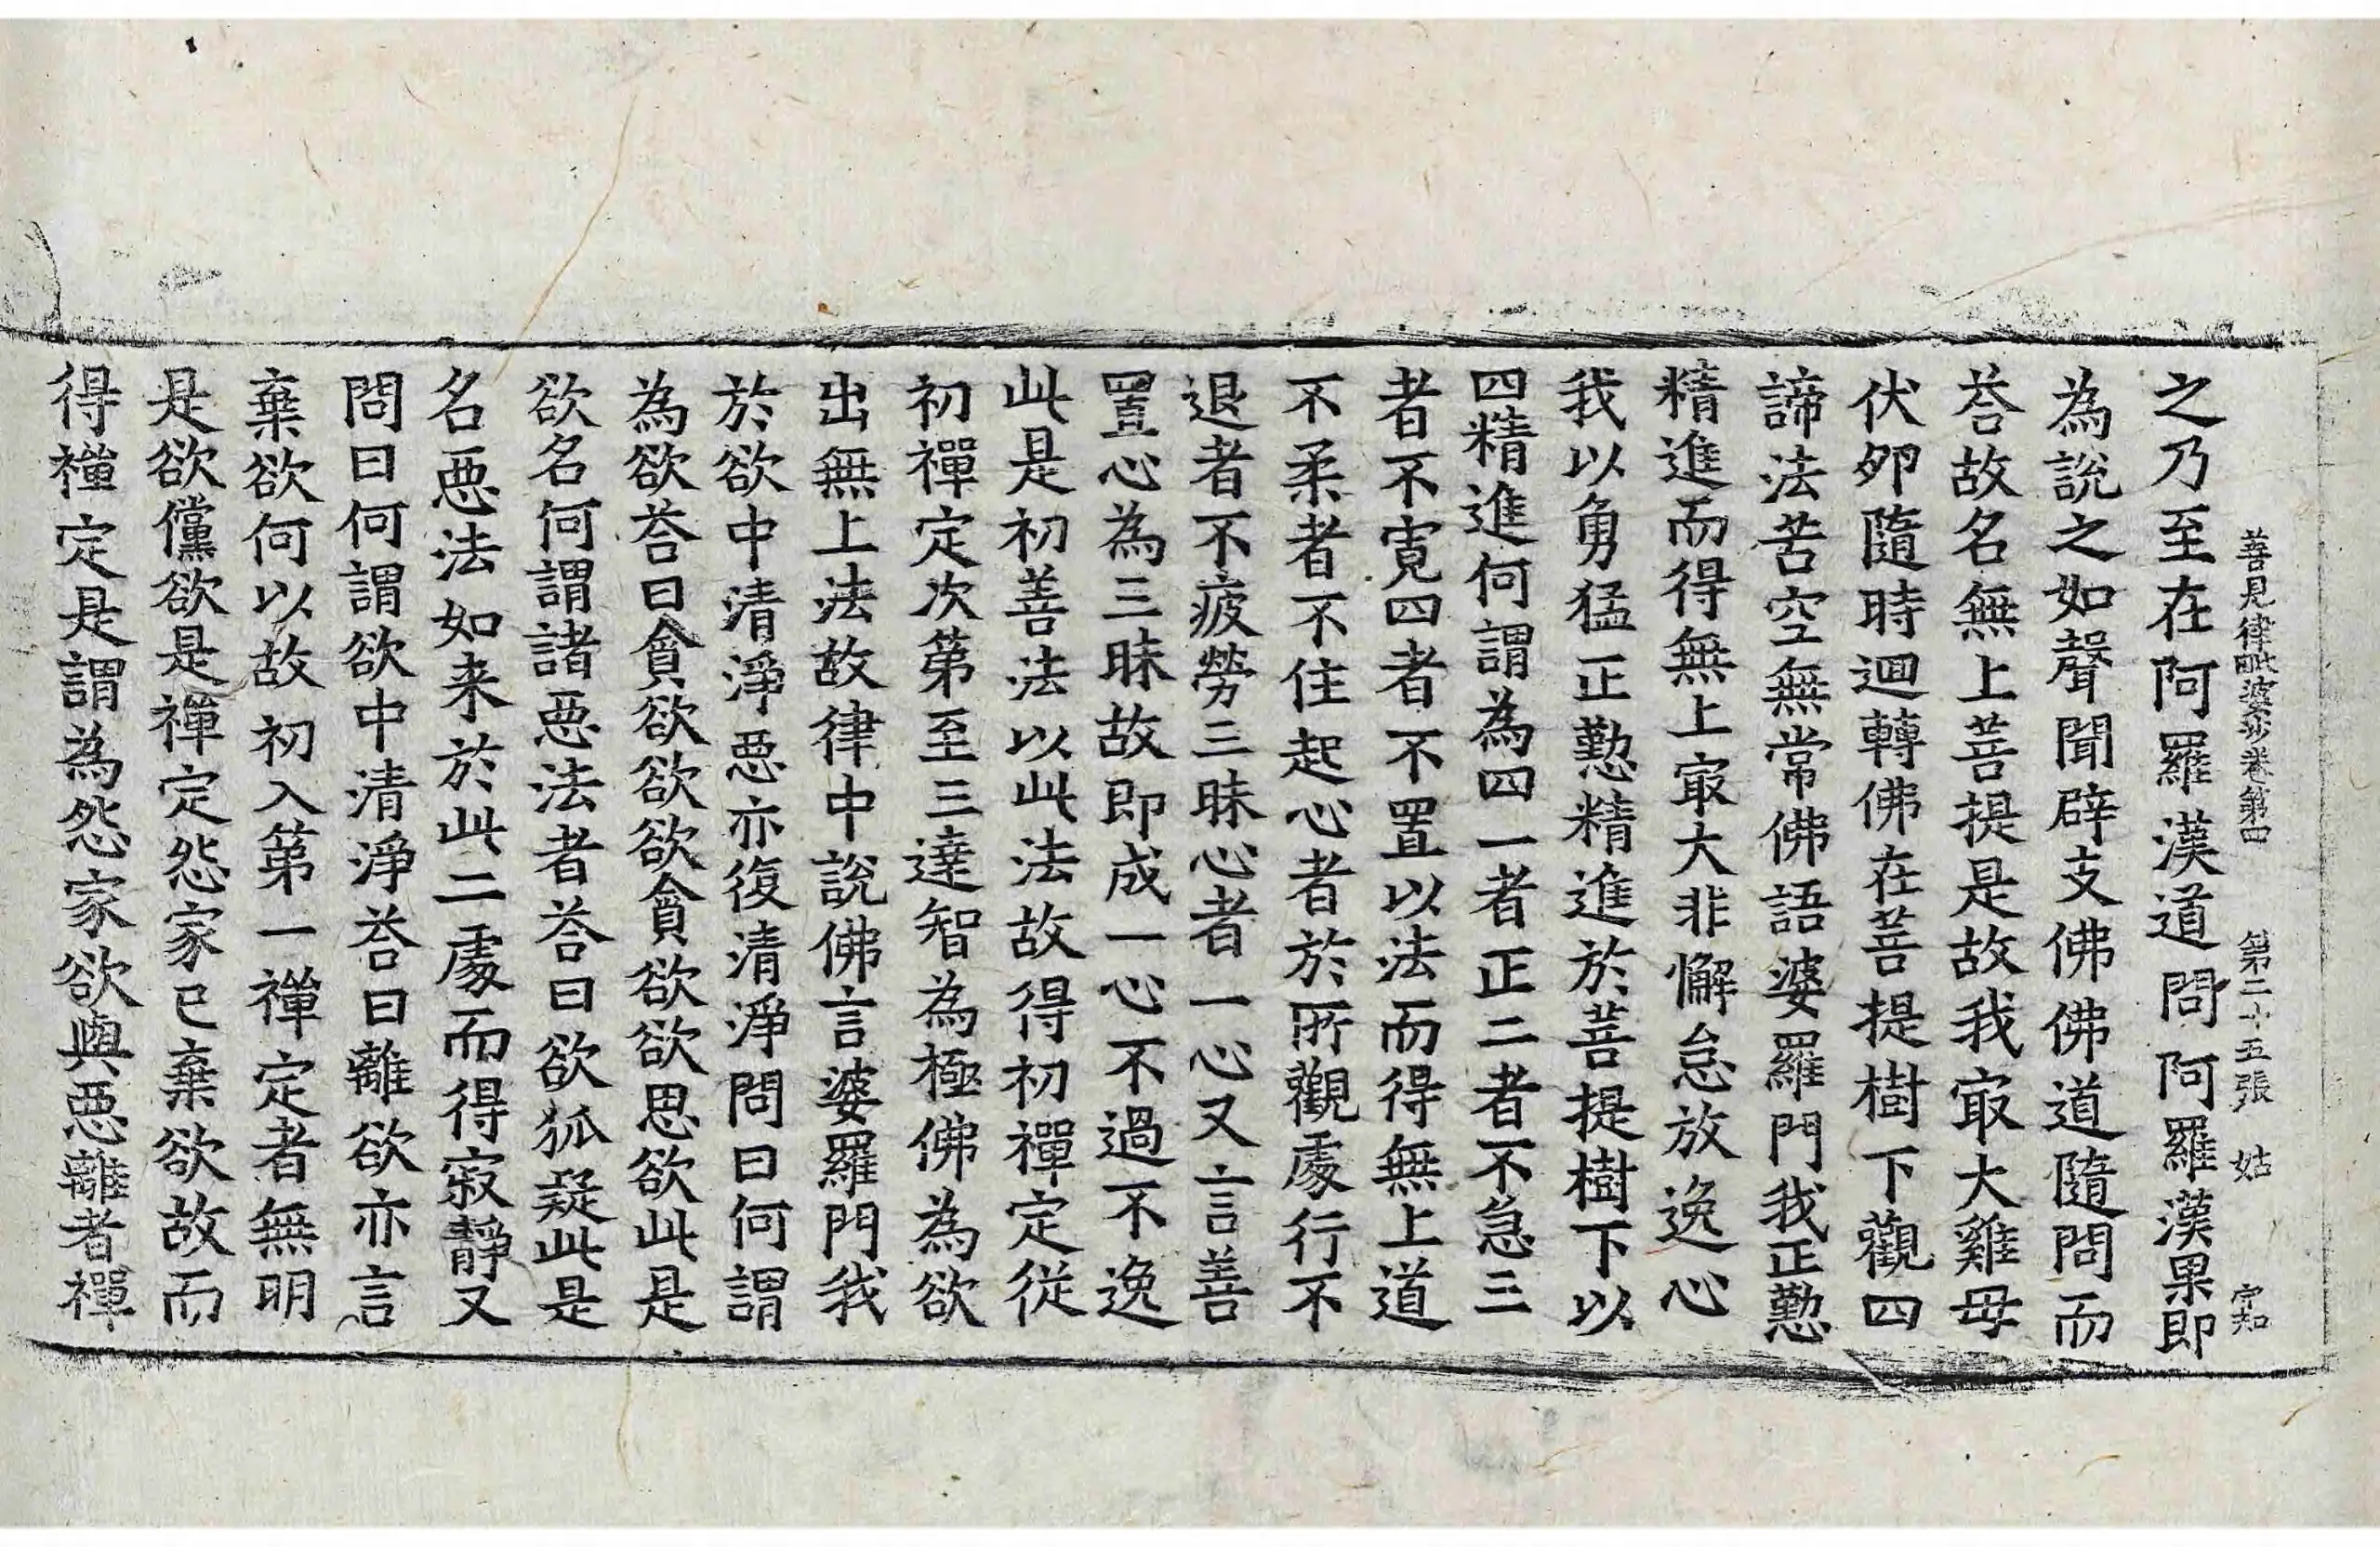 善見律毗婆沙卷第四 第二十五張 姑 字知
之乃至在阿羅漢道問阿羅漢果即
為說之如聲聞辟支佛佛道隨問而
荅故名無上菩提是故我㝡大雞毋
伏卵隨時迴轉佛在菩提樹下觀四
諦法苦空無常佛語婆羅門我正懃
精進而得無上㝡大非懈怠放逸心
我以勇猛正懃精進於菩提樹下以
四精進何謂為四一者正二者不急三
者不寛四者不置以法而得無上道
不柔者不住起心者於所觀處行不
退者不疲勞三昧心者一心又言善
置心為三昧故即成一心不過不逸
此是初善法以此法故得初禪定從
初禪定次第至三達智為極佛為欲
出無上法故律中說佛言婆羅門我
於欲中清淨惡亦復清淨問曰何謂
為欲荅曰貪欲欲欲貪欲欲思欲此是
欲名何謂諸惡法者荅曰欲狐疑此是
名惡法如来於此二處而得寂靜又
問曰何謂欲中清淨荅曰離欲亦言
棄欲何以故初入第一禪定者無明
是欲儻欲是禪定怨家已棄欲故而
得禪定是謂為怨家欲與惡離者禪